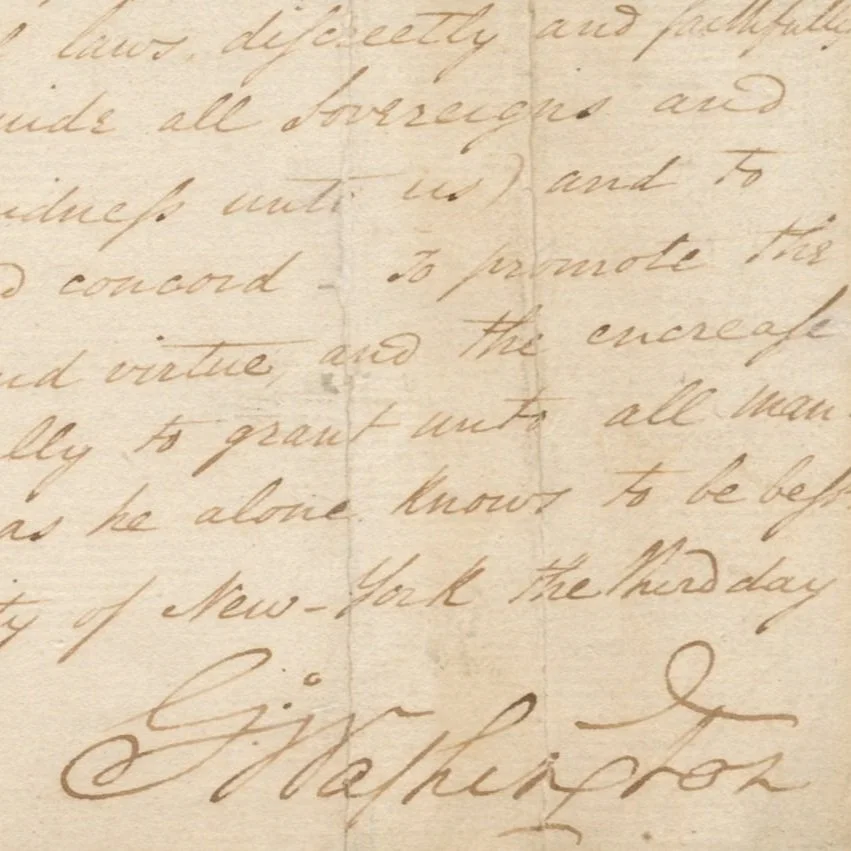 laws, discreetly and faithfully
uide all Sovereigns and
idness unto us) and to
d concord - To promote the
nd virtue, and the encrease
lly to grant unto all man-
as he alone knows to be best
ty of New-York the third day
G:Washington